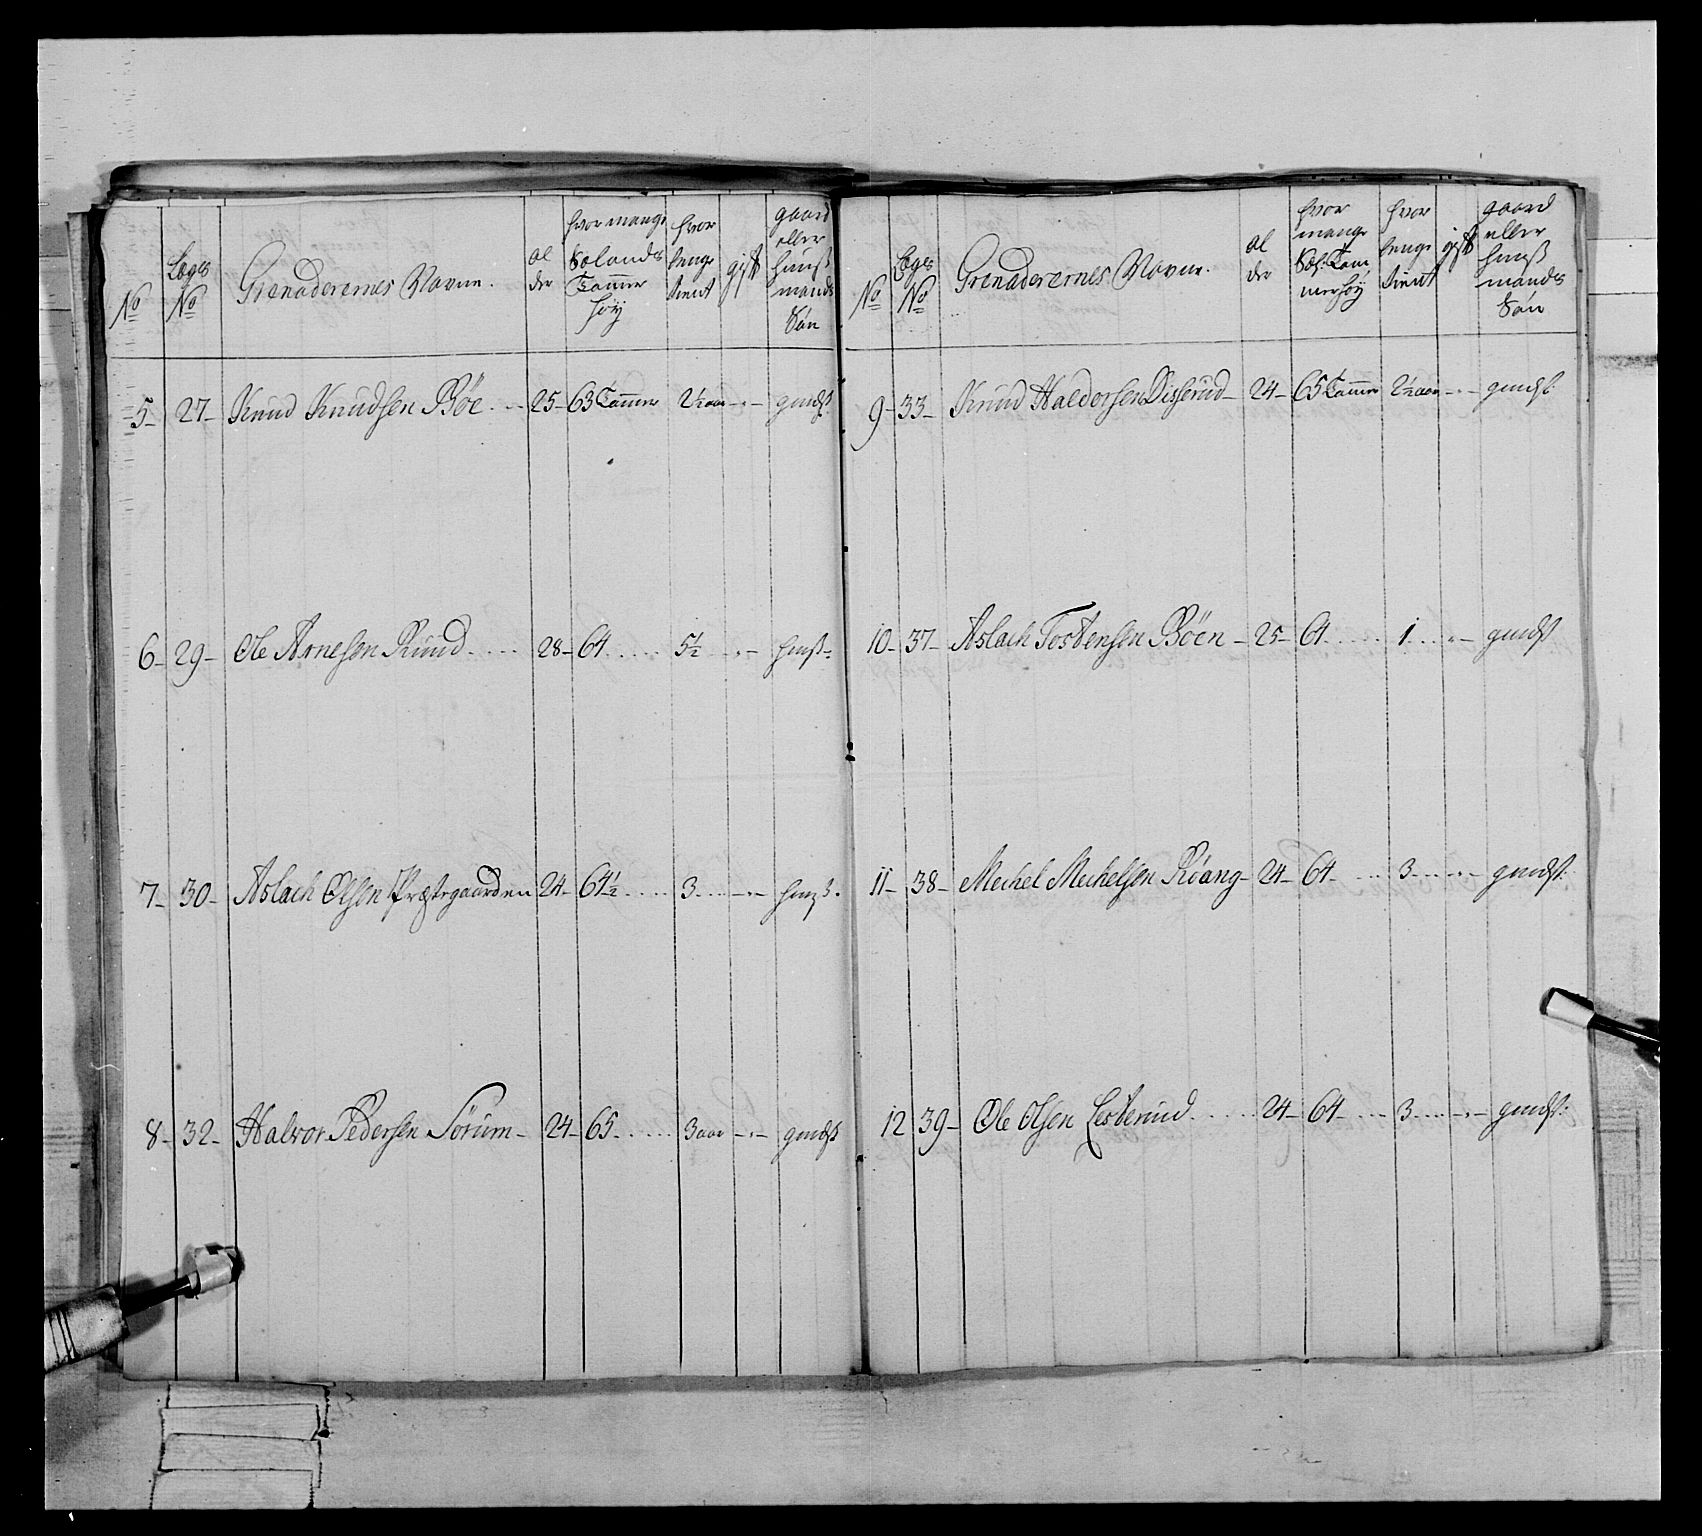 No
Læges No
Grenaderernes Navne.
al der
hvor mange Sælands Tommer höy
hvor lenge tient
gift
gaard eller huuß mands Sön
5- 27- Knud Knudsen Böe - 25- 63 Tommer 2½ aar -"- gmdß:
6- 29- Ole Arnesen Ruud 28- 64 5½ -"- huuß-
7- 30- Aslach Olsen Præstegaarden 24- 64½ 3 -"- huuß.
8- 32- Halvor Pedersen Sörum- 24- 65 3 aar -"- gmdß
No
Læges No
Grenaderernes Navne.
al der
hvor mange Sæl: Tom mer höy
hvor lenge tient
gift
gaard eller huuß mands Sön
9- 33- Knud Haldorsen Disserud- 24- 65 Tommer 2½ aar -"- gmdß:
10- 37- Aslach Tostensen Böen- 25- 61 1 -"- gmdß
11- 38- Mechel Mechelsen Röang- 24- 64 3 -"- gmdß:
12 39- Ole Olsen Lesterud 24- 64 3 -"- gmdß: